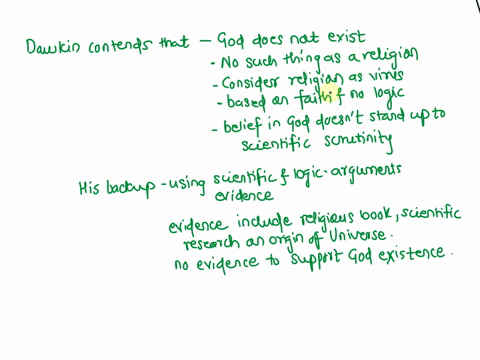 Dawkin contends that - God does not exist
- No such thing as a religion
- Consider religion as virus
- based on faith & no logic
- belief in God doesn't stand up to
scientific scrutinity
His backup - using scientific & logic. arguments
evidence
evidence include religious book, scientific
research on origin of Universe.
no evidence to support God existence.